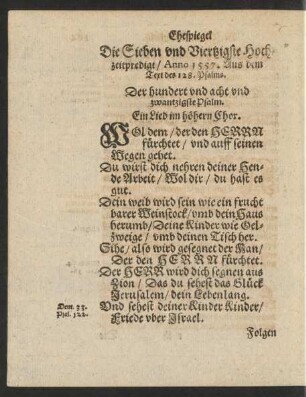 Ehespiegel
Die Sieben vnd Viertzigste Hoch-
zeitpredigt / Anno 1557. Aus dem
Text des 128. Psalms.
Der hundert vnd acht vnd
zwantzigste Psalm.
Ein Lied im höhern Chor.
WOl dem / der den HERRN
fürchtet / vnd auff seinen
Wegen gehet.
Du wirst dich nehren deiner Hen-
de Arbeit / Wol dir / du hast es
gut.
Dein weib wird sein wie ein frucht
barer Weinstock / vmb dein Haus
herumb / Deine Kinder wie Oel-
zweige / vmb deinen Tisch her.
Sihe / also wird gesegnet der Man /
Der den HERRN fürchtet.
Der HERR wird dich segnen aus
Zion / Das du sehest das Glück
Jerusalem / dein Lebenlang.
Vnd sehest deiner Kinder Kinder /
Friede vber Israel.
Deut. 33.
Psal. 122.
Folgen